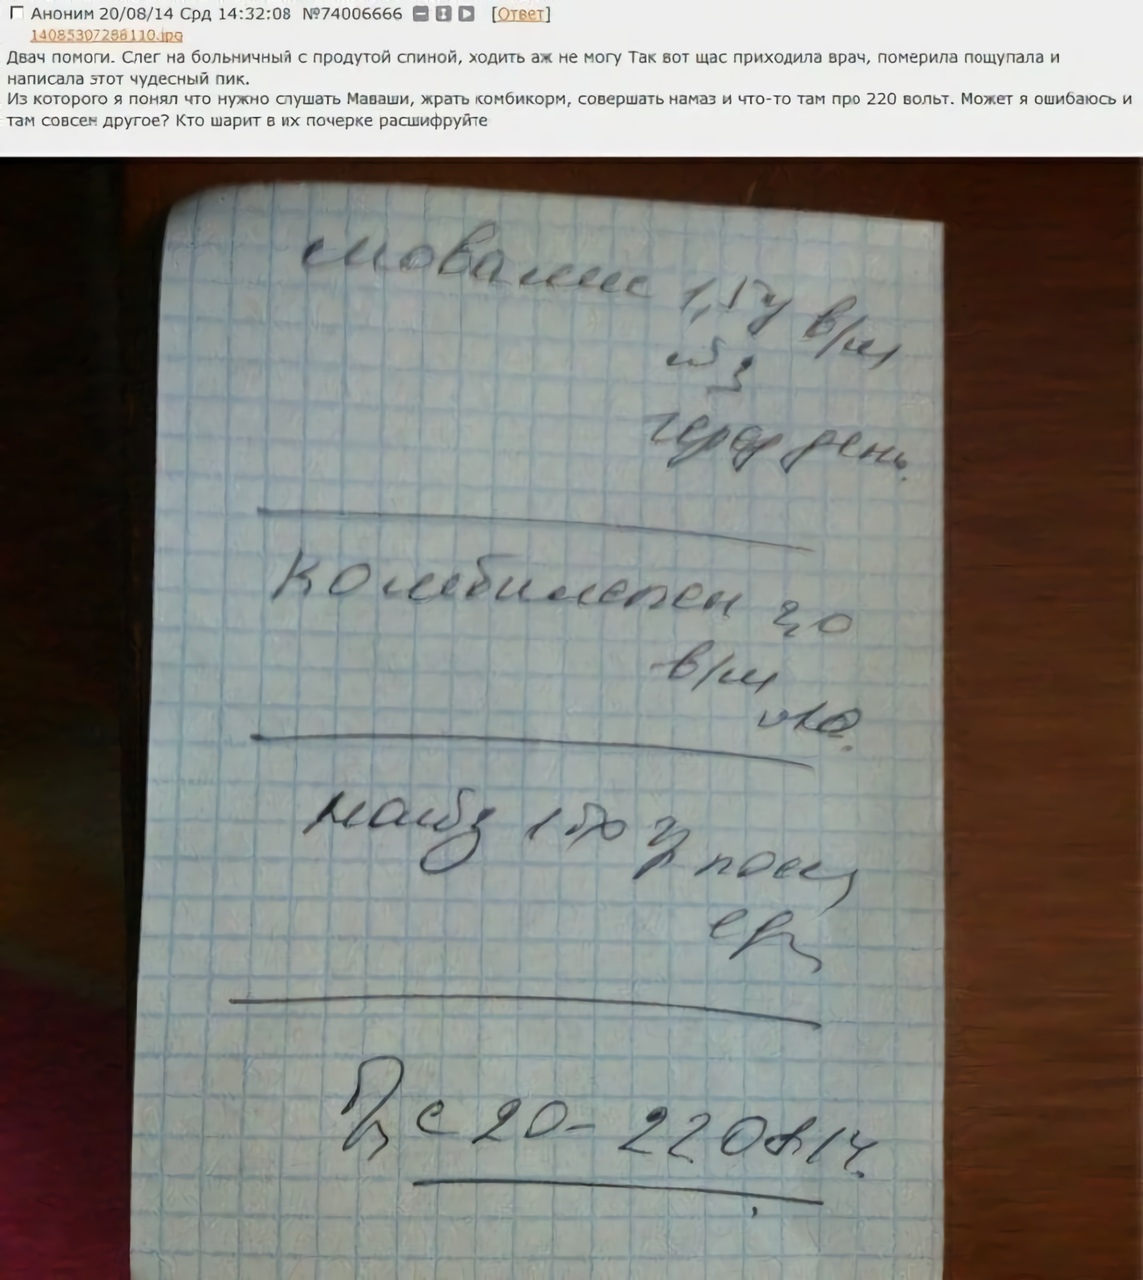 Аноним 20/08/14 Срд 14:32:08 №74006666 [Ответ]
14085307288110.jpg
Двач помоги. Слег на больничный с продутой спиной, ходить аж не могу Так вот щас приходила врач, померила пощупала и
написала этот чудесный пик.
Из которого я понял что нужно слушать Маваши, жрать комбикорм, совершать намаз и что-то там про 220 вольт. Может я ошибаюсь и
там совсем другое? Кто шарит в их почерке расшифруйте
мовалис 1,5 в/м
N3
через день.
Комбилепен 2,0
в/м
N10.
Найз 1
еды
с 20- 22.08.14.